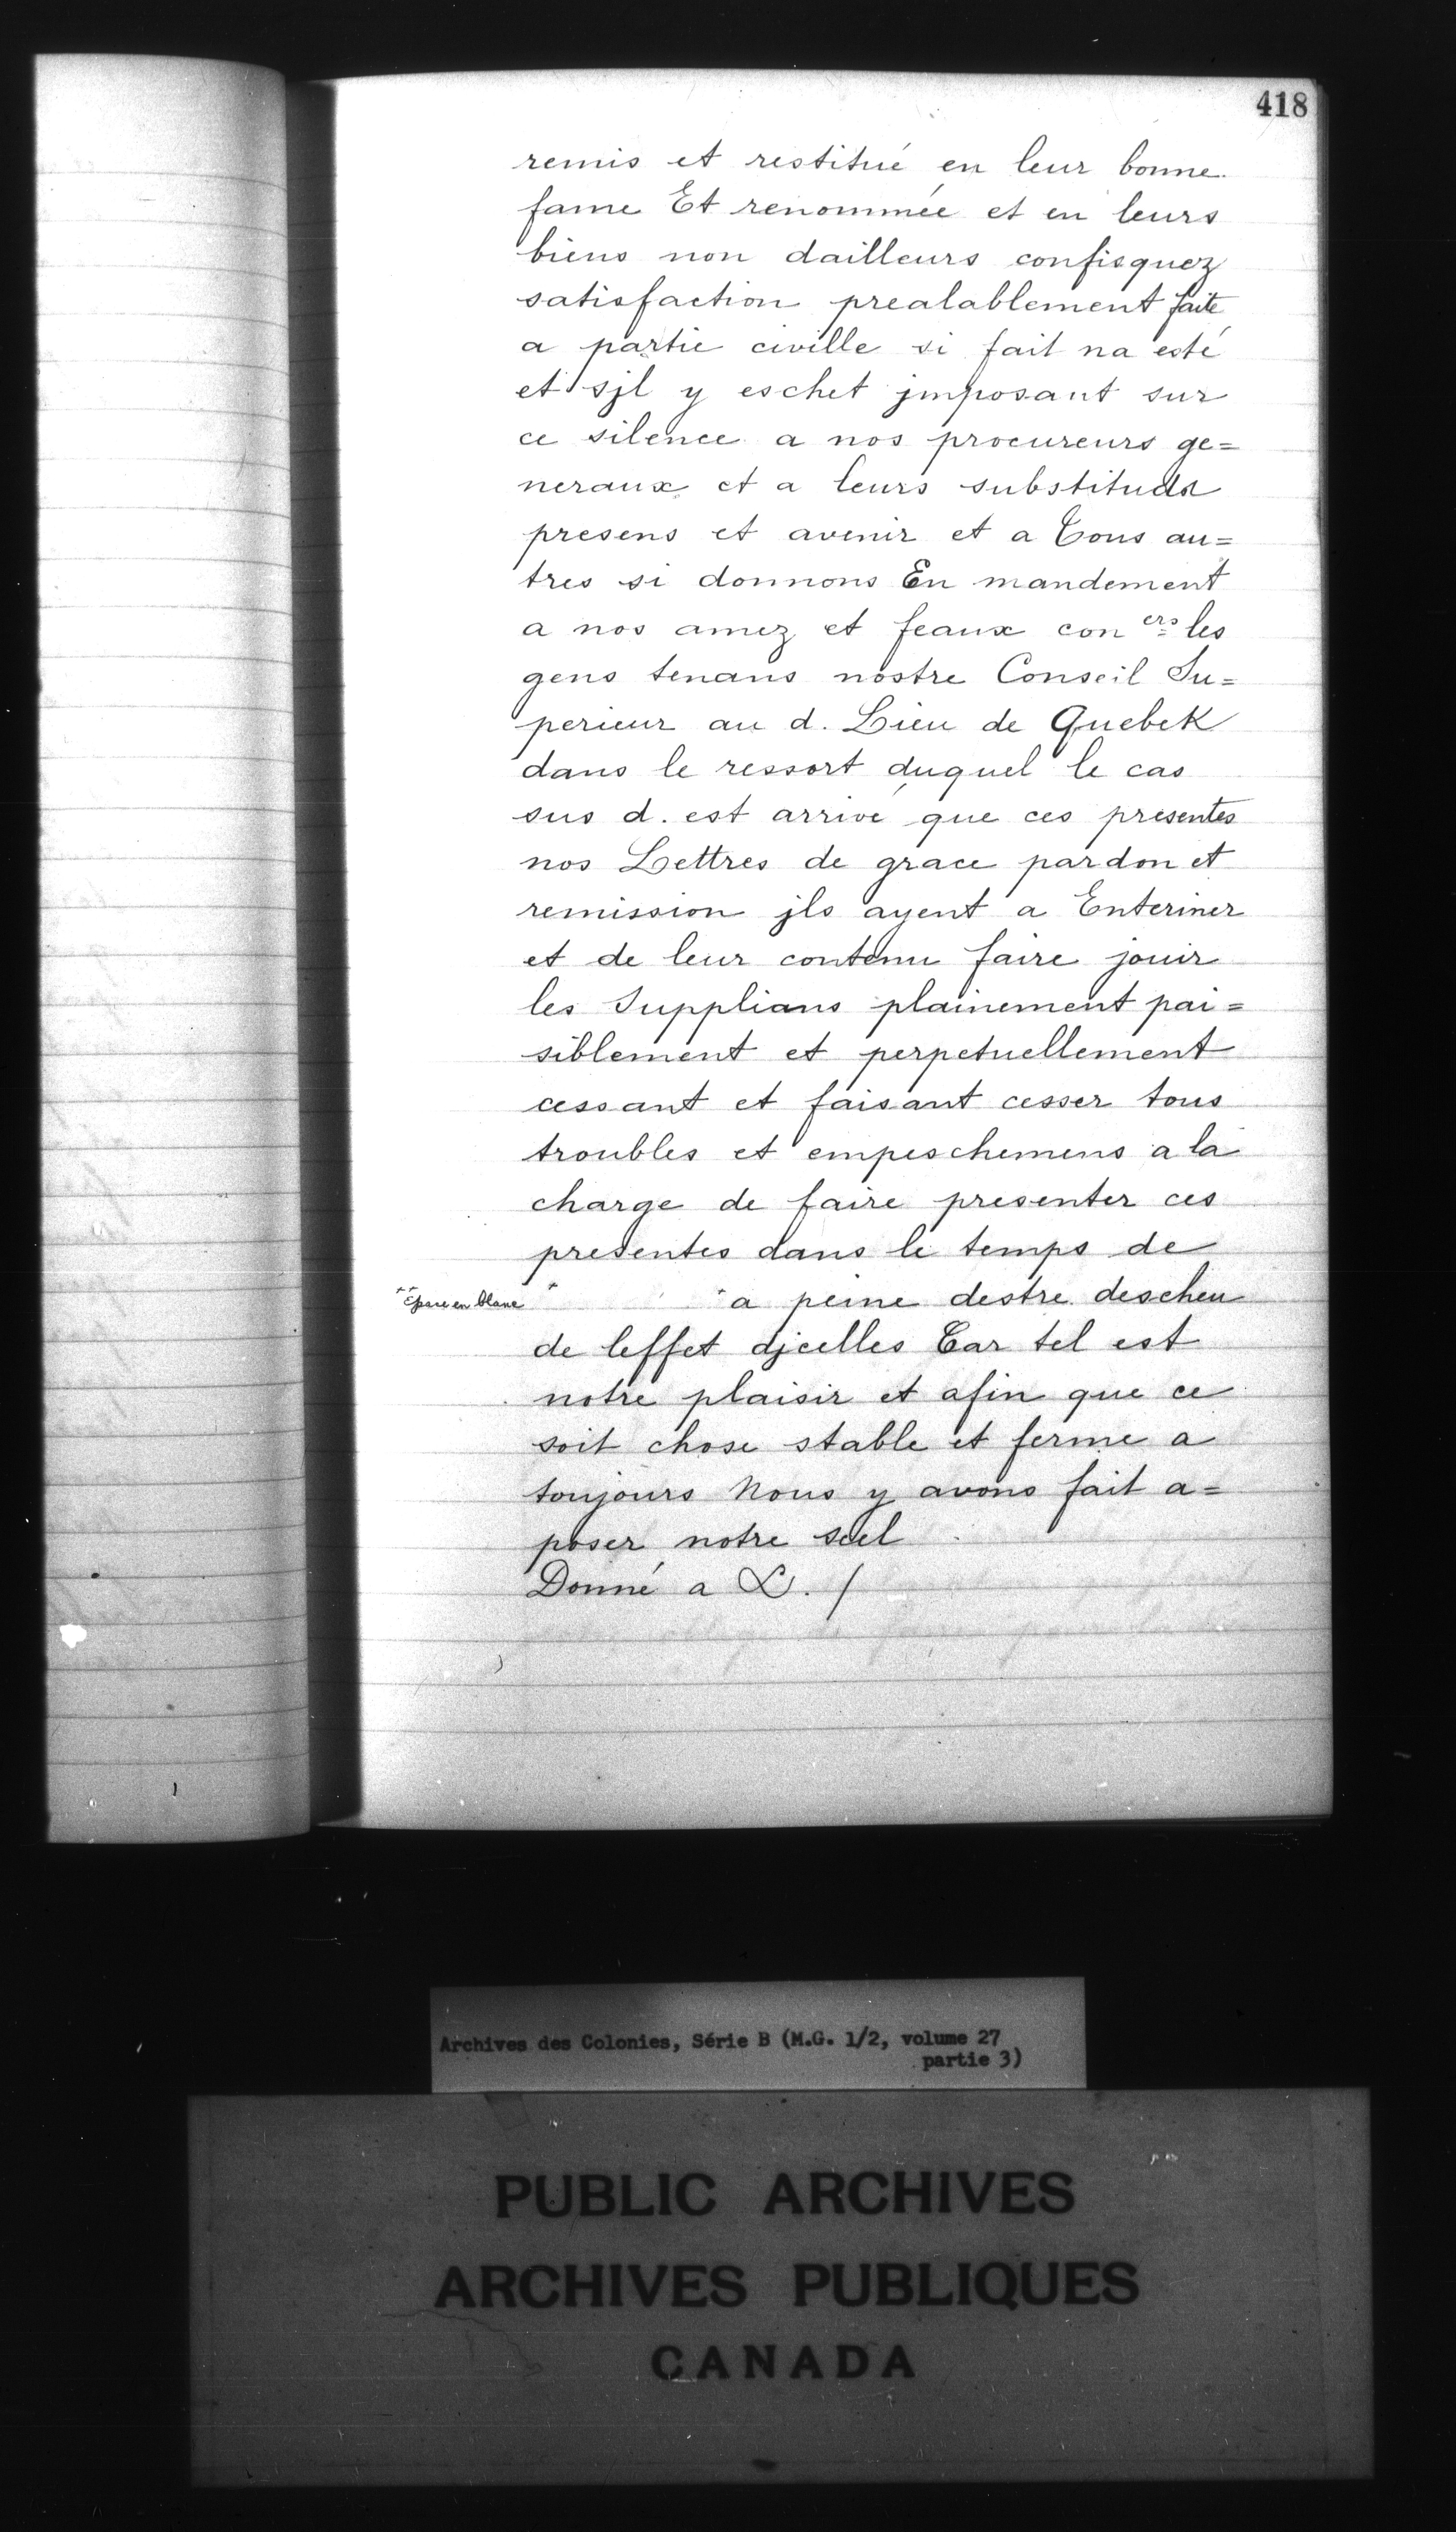 418
remis et restitué en leur bonne
fame Et renommée et en leurs
biens non dailleurs confisquez
satisfaction prealablement faite
a partie civille si fait na esté
et sjl y eschet jmposant sur
ce silence a nos procureurs ge=
neraux et a leurs substituds
presens et avenir et a Tous au=
tres si donnons En mandement
a nos amez et feaux con ers les
gens tenans nostre Conseil Su=
perieur au d. Lieu de Quebek
dans le ressort duquel le cas
sus d. est arrivé que ces presentes
nos Lettres de grace pardon et
remission jls ayent a Enteriner
et de leur contenu faire jouir
les Supplians plainement pai=
siblement et perpetuellement
cessant et faisant cesser tous
troubles et empeschemens a la
charge de faire presenter ces
presentes dans le temps de
** Espace en blanc * * a peine destre descheu
de leffet djcelles Car tel est
notre plaisir et afin que ce
soit chose stable et ferme a
toujours Nous y avons fait a=
poser notre scel
Donné a &. /
Archives des Colonies, Série B (M.G. 1/2, volume 27
partie 3)
PUBLIC ARCHIVES
ARCHIVES PUBLIQUES
CANADA